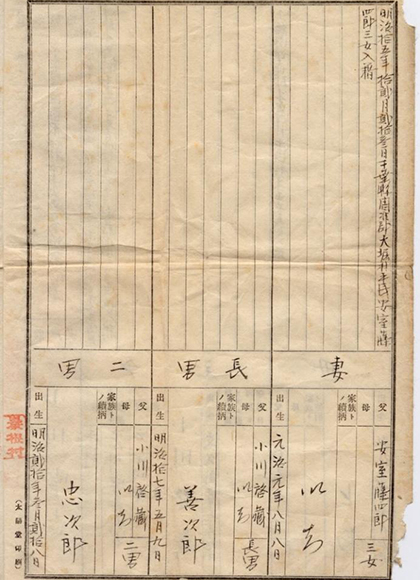 明治拾五年拾貳月貳拾叁日千葉縣周准郡大堀村平民安室藤
四郎三女入籍
妻
父
安室藤四郎
三女
母
家族トノ續柄
出生
元治元年八月八日
長男
父
小川啓藏
長男
母
家族トノ續柄
善次郎
出生
明治拾七年五月九日
二男
父
小川啓藏
二男
母
家族トノ續柄
忠次郎
出生
明治貳拾年叁月貳拾八日